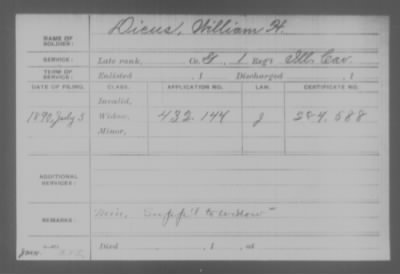 NAME OF SOLDIER: Dicus, William H.
SERVICE: Late rank, Co. G, 1 Reg't Ill. Cav.
TERM OF SERVICE: Enlisted , 1 Discharged , 1
DATE OF FILING. CLASS. APPLICATION NO. LAW. CERTIFICATE NO.
Invalid,
1890, July 5 Widow, 432.144 J 284.688
Minor,
ADDITIONAL SERVICES:
REMARKS: Min. Supp'l to widow
Died , 1 , at